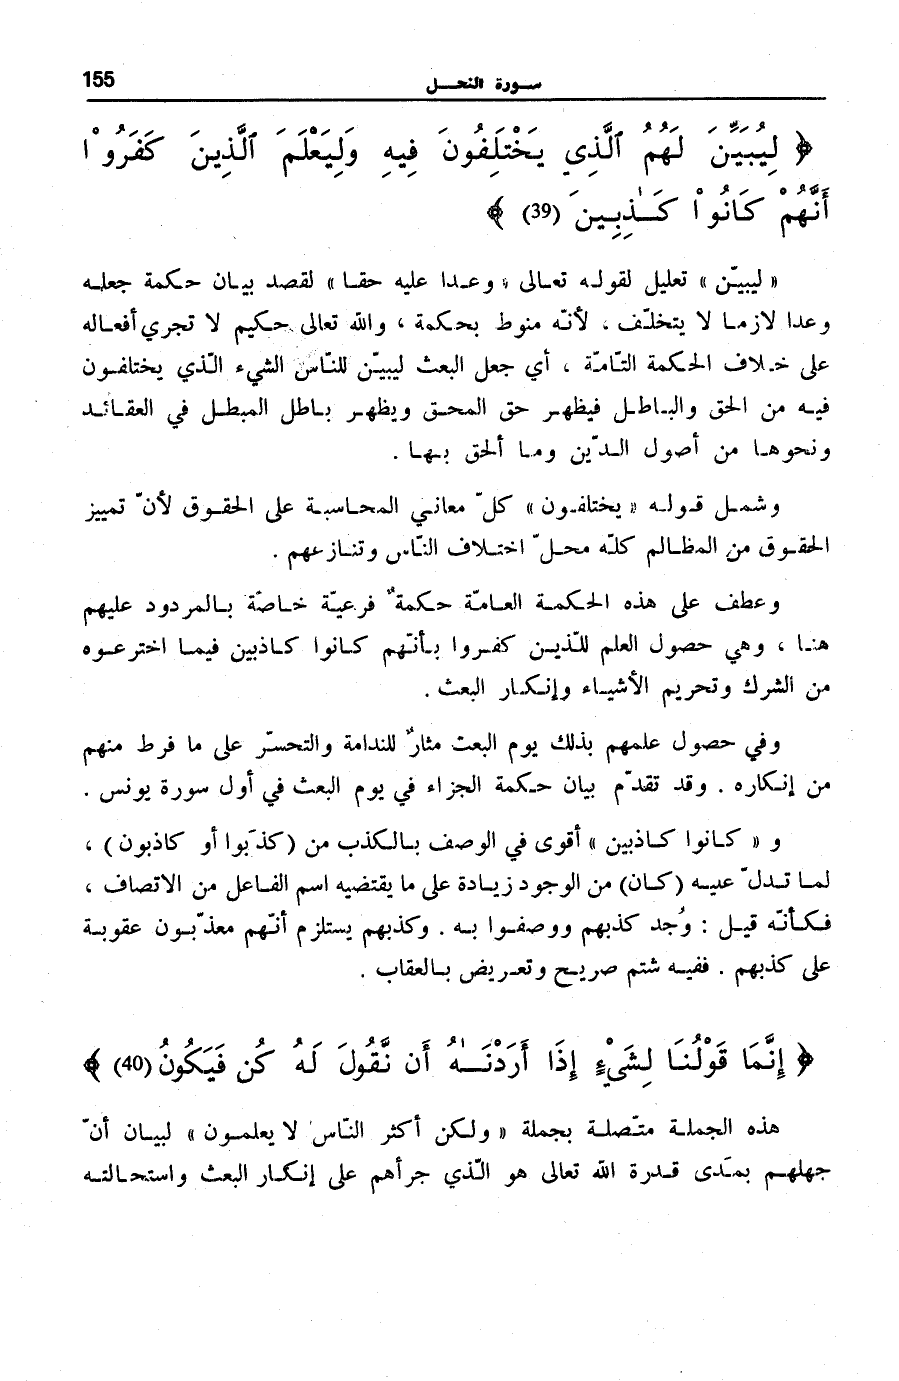 سورة النحل 155
﴿ لِيُبَيِّنَ لَهُمُ ٱلَّذِي يَخْتَلِفُونَ فِيهِ وَلِيَعْلَمَ ٱلَّذِينَ كَفَرُواْ
أَنَّهُمْ كَانُواْ كَـٰذِبِينَ (39) ﴾
« ليبيّن » تعليل لقوله تعالى « وعدا عليه حقا » لقصد بيان حكمة جعله
وعدا لازما لا يتخلّف ، لأنّه منوط بحكمة ، والله تعالى حكيم لا تجري أفعاله
على خلاف الحكمة التّامّة ، أي جعل البعث ليبيّن للنّاس الشيء الّذي يختلفون
فيه من الحق والباطل فيظهر حق المحق ويظهر باطل المبطل في العقائد
ونحوها من أصول الدّين وما ألحق بها .
وشمل قوله « يختلفون » كلّ معاني المحاسبة على الحقوق لأنّ تمييز
الحقوق من المظالم كلّه محلّ اختلاف النّاس وتنازعهم .
وعطف على هذه الحكمة العامّة حكمةٌ فرعيّة خاصّة بالمردود عليهم
هنا ، وهي حصول العلم للّذين كفروا بأنّهم كانوا كاذبين فيما اخترعوه
من الشرك وتحريم الأشياء وإنكار البعث .
وفي حصول علمهم بذلك يوم البعث مثارٌ للندامة والتحسّر على ما فرط منهم
من إنكاره . وقد تقدّم بيان حكمة الجزاء في يوم البعث في أول سورة يونس .
و « كانوا كاذبين » أقوى في الوصف بالكذب من (كذَبوا أو كاذبون) ،
لما تدلّ عليه (كان) من الوجود زيادة على ما يقتضيه اسم الفاعل من الاتصاف ،
فكأنّه قيل : وُجد كذبهم ووصفوا به . وكذبهم يستلزم أنّهم معذّبون عقوبة
على كذبهم . ففيه شتم صريح وتعريض بالعقاب .
﴿ إِنَّمَا قَوْلُنَا لِشَيْءٍ إِذَا أَرَدْنَـٰهُ أَن نَّقُولَ لَهُ كُن فَيَكُونُ (40) ﴾
هذه الجملة متّصلة بجملة « ولكن أكثر النّاس لا يعلمون » لبيان أنّ
جهلهم بمَدى قدرة الله تعالى هو الّذي جرأهم على إنكار البعث واستحالته